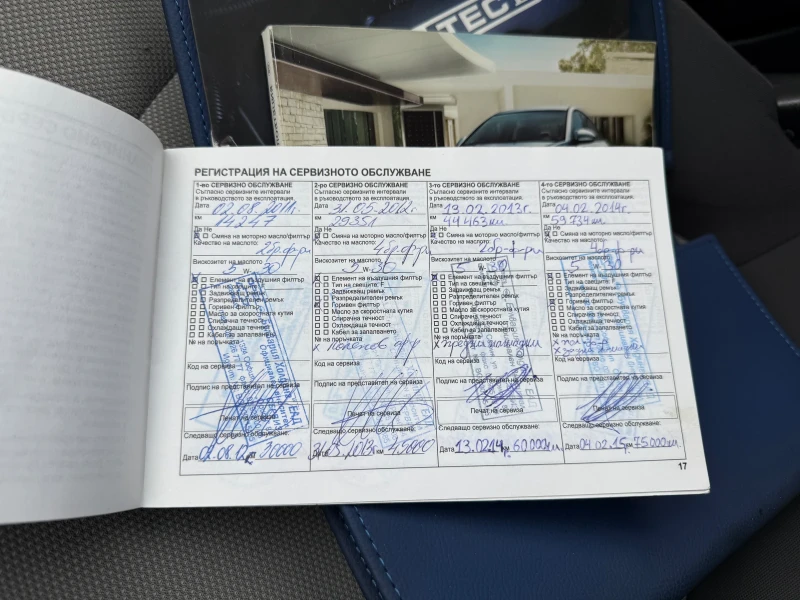 TEC
РЕГИСТРАЦИЯ НА СЕРВИЗНОТО ОБСЛУЖВАНЕ
1-во СЕРВИЗНО ОБСЛУЖВАНЕ
Съгласно сервизните интервали
в ръководството за експлоатация.
Дата 02.08.2011г.
км 14217
Да Не
Смяна на моторно масло/филтър
Качество на маслото:
Вискозитет на маслото
5 W- 30
Елемент на въздушния филтър
Тип на свещите: F
Задвижващ ремък
Разпределителен ремък
Горивен филтър
Масло за скоростната кутия
Спирачна течност
Охлаждаща течност
Кабел за запалването
№ на поръчката
Код на сервиза
Подпис на представител на сервиза
Печат на сервиза
Следващо сервизно обслужване:
Дата 02.08.12 км 30000
2-ро СЕРВИЗНО ОБСЛУЖВАНЕ
Съгласно сервизните интервали
в ръководството за експлоатация.
Дата 31.05.2012г.
км 29351
Да Не
Смяна на моторно масло/филтър
Качество на маслото:
Вискозитет на маслото
5 W- 30
Елемент на въздушния филтър
Тип на свещите: F
Задвижващ ремък
Разпределителен ремък
Горивен филтър
Масло за скоростната кутия
Спирачна течност
Охлаждаща течност
Кабел за запалването
№ на поръчката
Код на сервиза
Подпис на представител на сервиза
Печат на сервиза
Следващо сервизно обслужване:
Дата 31.05.2013г. км 45000
3-то СЕРВИЗНО ОБСЛУЖВАНЕ
Съгласно сервизните интервали
в ръководството за експлоатация.
Дата 19.02.2013г.
км 44463км
Да Не
Смяна на моторно масло/филтър
Качество на маслото:
Вискозитет на маслото
5 W- 30
Елемент на въздушния филтър
Тип на свещите: F
Задвижващ ремък
Разпределителен ремък
Горивен филтър
Масло за скоростната кутия
Спирачна течност
Охлаждаща течност
Кабел за запалването
№ на поръчката
Код на сервиза
Подпис на представител на сервиза
Печат на сервиза
Следващо сервизно обслужване:
Дата 13.02.14г. км 60.000км.
4-то СЕРВИЗНО ОБСЛУЖВАНЕ
Съгласно сервизните интервали
в ръководството за експлоатация.
Дата 04.02.2014г.
км 59734км.
Да Не
Смяна на моторно масло/филтър
Качество на маслото:
Вискозитет на маслото
Елемент на въздушния филтър
Тип на свещите: F
Задвижващ ремък
Разпределителен ремък
Горивен филтър
Масло за скоростната кутия
Спирачна течност
Охлаждаща течност
Кабел за запалването
№ на поръчката
Код на сервиза
Подпис на представител на сервиза
Печат на сервиза
Следващо сервизно обслужване:
Дата 04.02.15г. км 75000км.
17